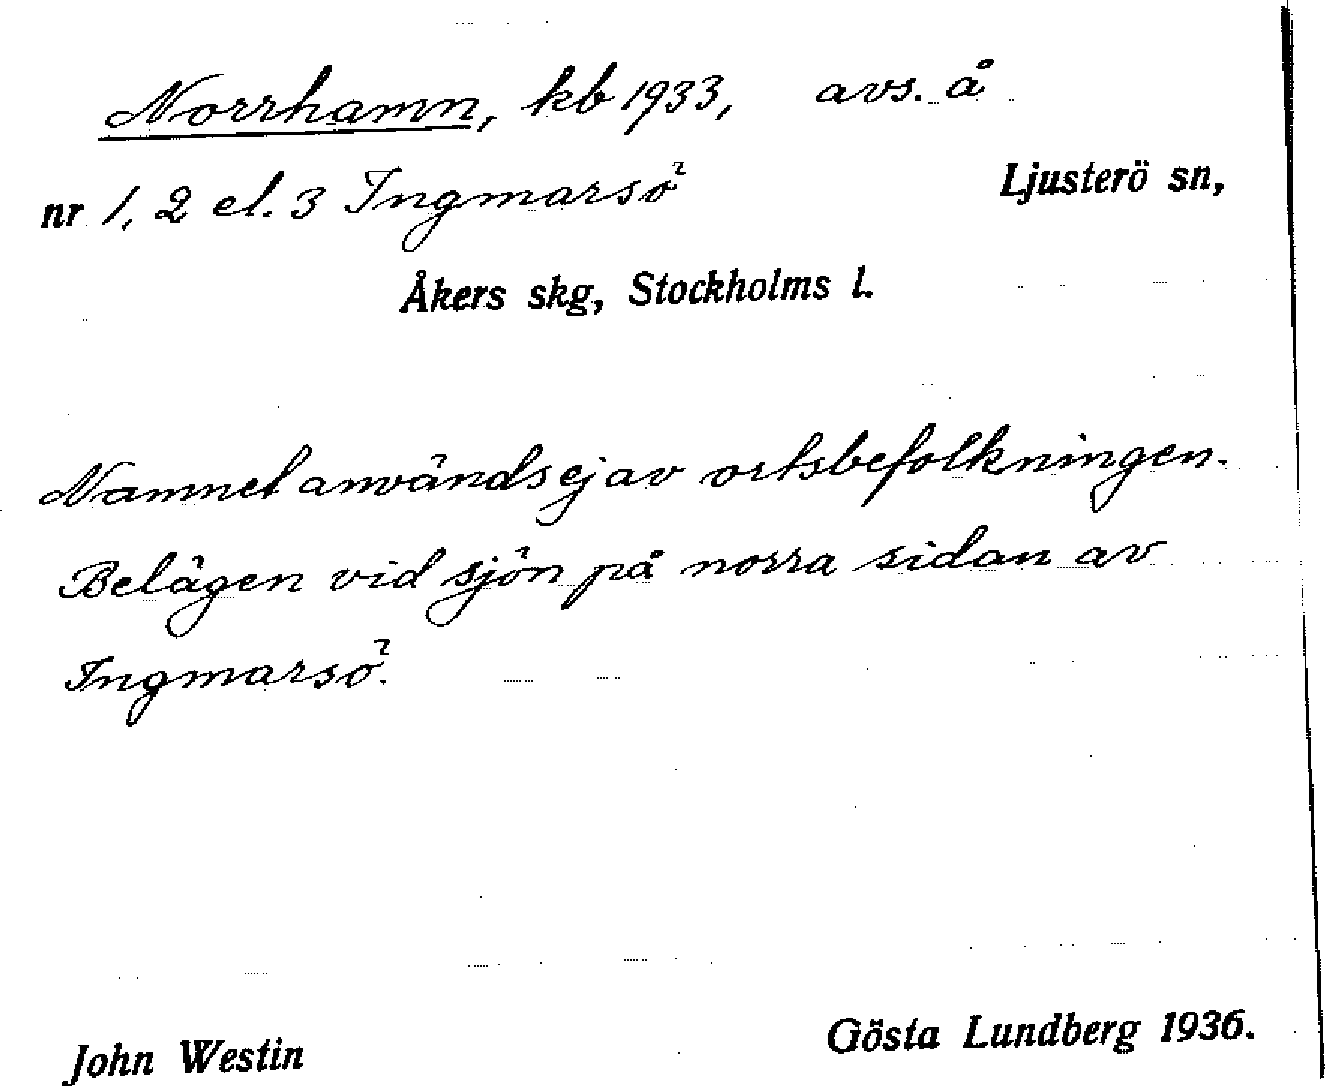 Norrhamn, kb 1933, avs. å
nr 1, 2 el. 3 Ingmarsö Ljusterö sn,
Åkers skg, Stockholms l.
Namnet användes ej av ortsbefolkningen.
Belägen vid sjön på norra sidan av
Ingmarsö.
John Westin Gösta Lundberg 1936.